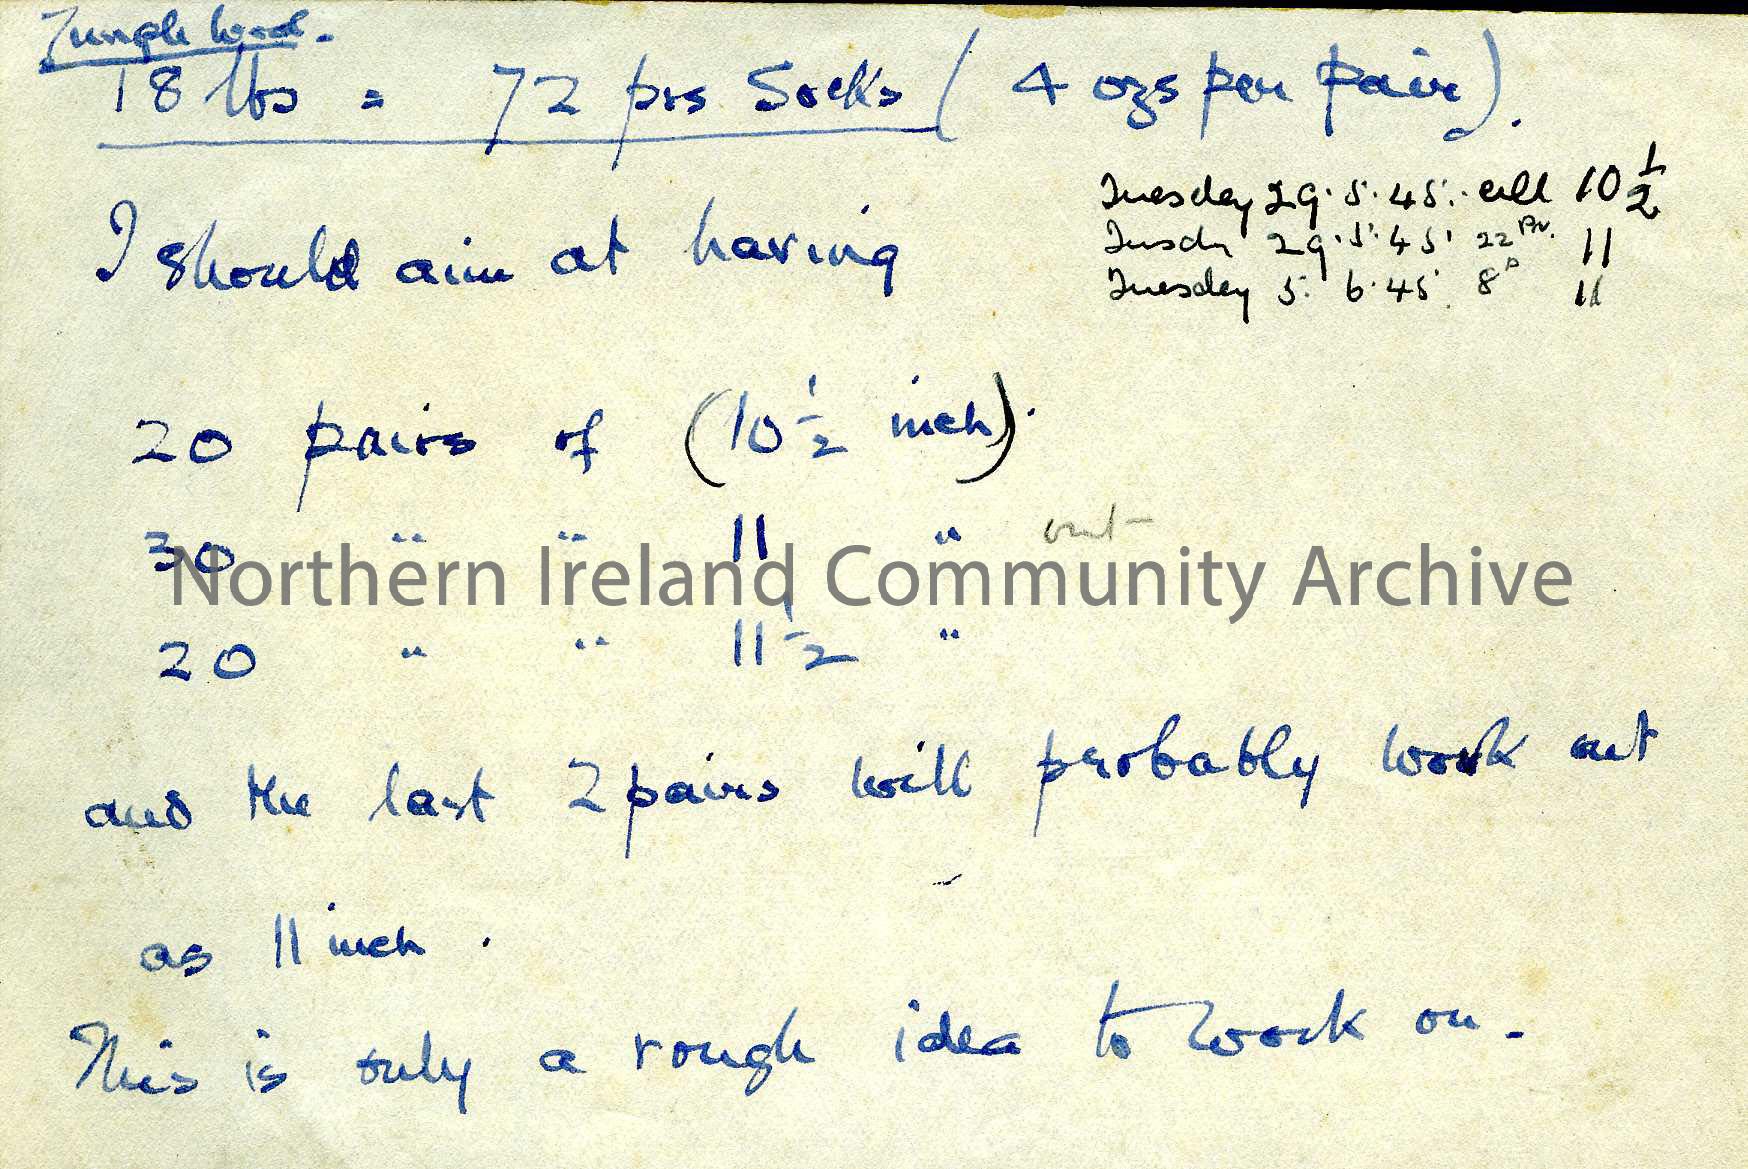 Jungle Wool.
18 lbs = 72 prs Socks ( 4 ozs per pair).
Tuesday 29.5.45. all 10 1/2
Tuesdy 29.5.45. 22 Pr. 11
Tuesday 5.6.45. 8 p 11
I should aim at having
20 pairs of (10 1/2 inch).
30 " " 11 " out
20 " " 11 1/2 "
Northern Ireland Community Archive
and the last 2 pairs will probably work out
as 11 inch.
This is only a rough idea to work on.